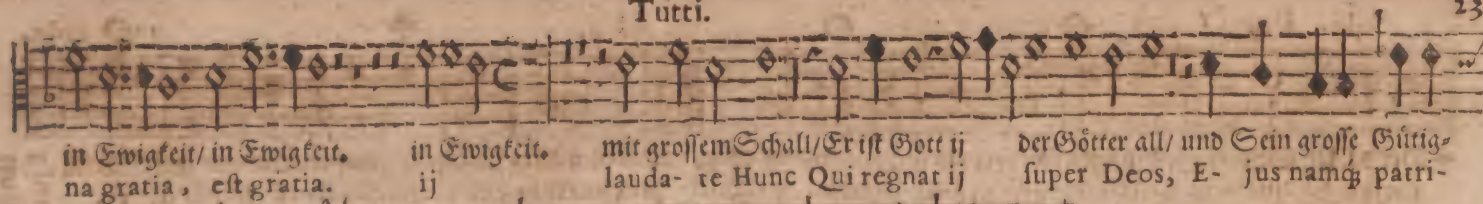 Tutti. 23
in Ewigkeit/ in Ewigkeit. in Ewigkeit. mit grossem Schall/ Er ist Gott ij der Götter all/ und Sein grosse Gütig-
na gratia, est gratia. ij lauda- te Hunc Qui regnat ij super Deos, E- jus namq; patri-